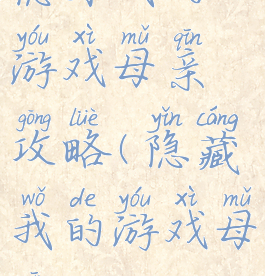 yóu xì mǔ qīn
游戏母亲
gōng lüè yǐn cáng
攻略(隐藏
wǒ de yóu xì mǔ
我的游戏母